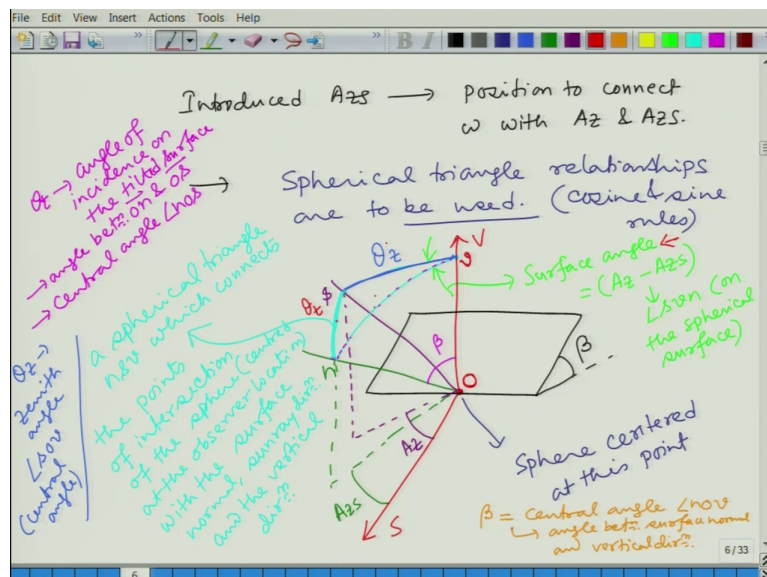 File Edit View Insert Actions Tools Help
B I
Introduced AZS → Position to connect
ω with AZ & AZS.
θt → angle of
incidence on
the tilted surface
→ angle betn ON & OS
→ central angle ∠nos
→ Spherical triangle relationships
are to be used. (cosine & sine
rules)
θz
V
v
Surface angle
= (Az - Azs)
↓
∠svn (on
the spherical
surface)
s
θt
a spherical triangle
nsv which connects
the points
of intersection
of the sphere (centred
at the observer location)
with the surface
normal, sunray dirn
and the vertical
dirn
n
β
β
O
θz →
zenith
angle
∠sov
(central
angle)
AZ
AZS
S
Sphere centered
at this point
β = central angle ∠nov
↳ angle betn surface normal
and vertical dirn.
6/33
6